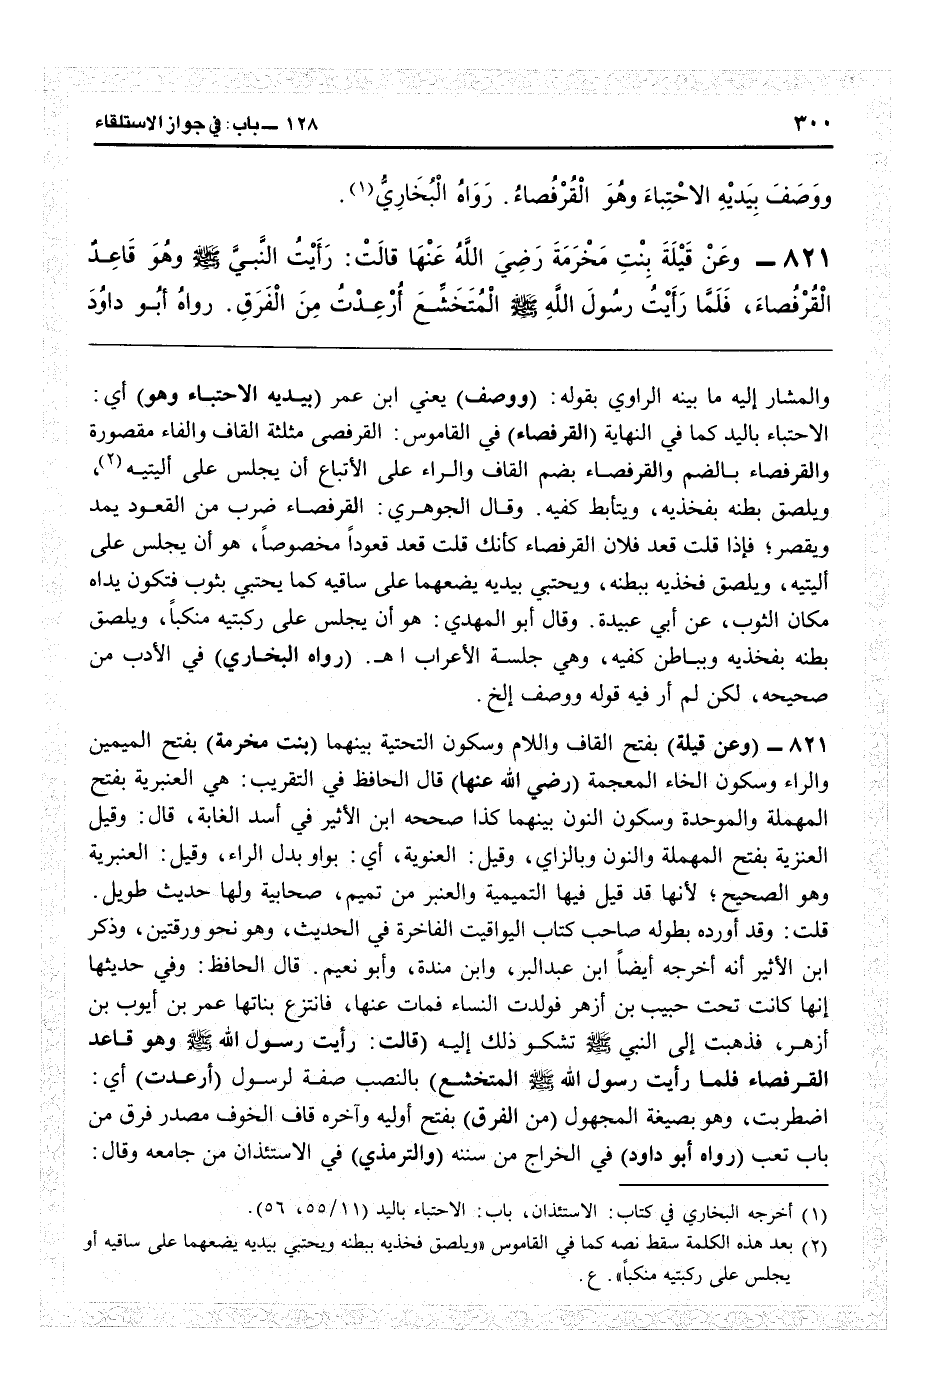 ٣٠٠ ١٢٨ ــ باب: في جواز الاستلقاء
ووَصَفَ بِيَدَيْهِ الاحْتِباءَ وهُوَ الْقُرْفُصاءُ. رَوَاهُ الْبُخَارِيُّ(١).
٨٢١ ــ وعَنْ قَيْلَةَ بِنْتِ مَخْرَمَةَ رَضِيَ اللَّهُ عَنْهَا قالَتْ: رَأَيْتُ النَّبيَّ ﷺ وهُوَ قَاعِدٌ
الْقُرْفُصاءَ، فَلَمَّا رَأَيْتُ رسُولَ اللَّهِ ﷺ الْمُتَخَشِّعَ أُرْعِدْتُ مِنَ الْفَرَقِ. رواهُ أبُو داوُدَ
والمشار إليه ما بينه الراوي بقوله: (ووصف) يعني ابن عمر (بيديه الاحتباء وهو) أي:
الاحتباء باليد كما في النهاية (القرفصاء) في القاموس: القرفصى مثلثة القاف والفاء مقصورة
والقرفصاء بالضم والقرفصاء بضم القاف والراء على الأتباع أن يجلس على أليتيه(٢)،
ويلصق بطنه بفخذيه، ويتأبط كفيه. وقال الجوهري: القرفصاء ضرب من القعود يمد
ويقصر؛ فإذا قلت قعد فلان القرفصاء كأنك قلت قعد قعوداً مخصوصاً، هو أن يجلس على
أليتيه، ويلصق فخذيه ببطنه، ويحتبي بيديه يضعهما على ساقيه كما يحتبي بثوب فتكون يداه
مكان الثوب، عن أبي عبيدة. وقال أبو المهدي: هو أن يجلس على ركبتيه منكباً، ويلصق
بطنه بفخذيه وبباطن كفيه، وهي جلسة الأعراب اهـ. (رواه البخاري) في الأدب من
صحيحه، لكن لم أر فيه قوله ووصف إلخ.
٨٢١ ــ (وعن قيلة) بفتح القاف واللام وسكون التحتية بينهما (بنت مخرمة) بفتح الميمين
والراء وسكون الخاء المعجمة (رضي الله عنها) قال الحافظ في التقريب: هي العنبرية بفتح
المهملة والموحدة وسكون النون بينهما كذا صححه ابن الأثير في أسد الغابة، قال: وقيل
العنزية بفتح المهملة والنون وبالزاي، وقيل: العنوية، أي: بواو بدل الراء، وقيل: العنبرية
وهو الصحيح؛ لأنها قد قيل فيها التميمية والعنبر من تميم، صحابية ولها حديث طويل.
قلت: وقد أورده بطوله صاحب كتاب اليواقيت الفاخرة في الحديث، وهو نحو ورقتين، وذكر
ابن الأثير أنه أخرجه أيضاً ابن عبدالبر، وابن مندة، وأبو نعيم. قال الحافظ: وفي حديثها
إنها كانت تحت حبيب بن أزهر فولدت النساء فمات عنها، فانتزع بناتها عمر بن أيوب بن
أزهر، فذهبت إلى النبي ﷺ تشكو ذلك إليه (قالت: رأيت رسول الله ﷺ وهو قاعد
القرفصاء فلما رأيت رسول الله ﷺ المتخشع) بالنصب صفة لرسول (أرعدت) أي:
اضطربت، وهو بصيغة المجهول (من الفرق) بفتح أوليه وآخره قاف الخوف مصدر فرق من
باب تعب (رواه أبو داود) في الخراج من سننه (والترمذي) في الاستئذان من جامعه وقال:
(١) أخرجه البخاري في كتاب: الاستئذان، باب: الاحتباء باليد (٥٥/١١، ٥٦).
(٢) بعد هذه الكلمة سقط نصه كما في القاموس «ويلصق فخذيه ببطنه ويحتبي بيديه يضعهما على ساقيه أو
يجلس على ركبتيه منكباً». ع.